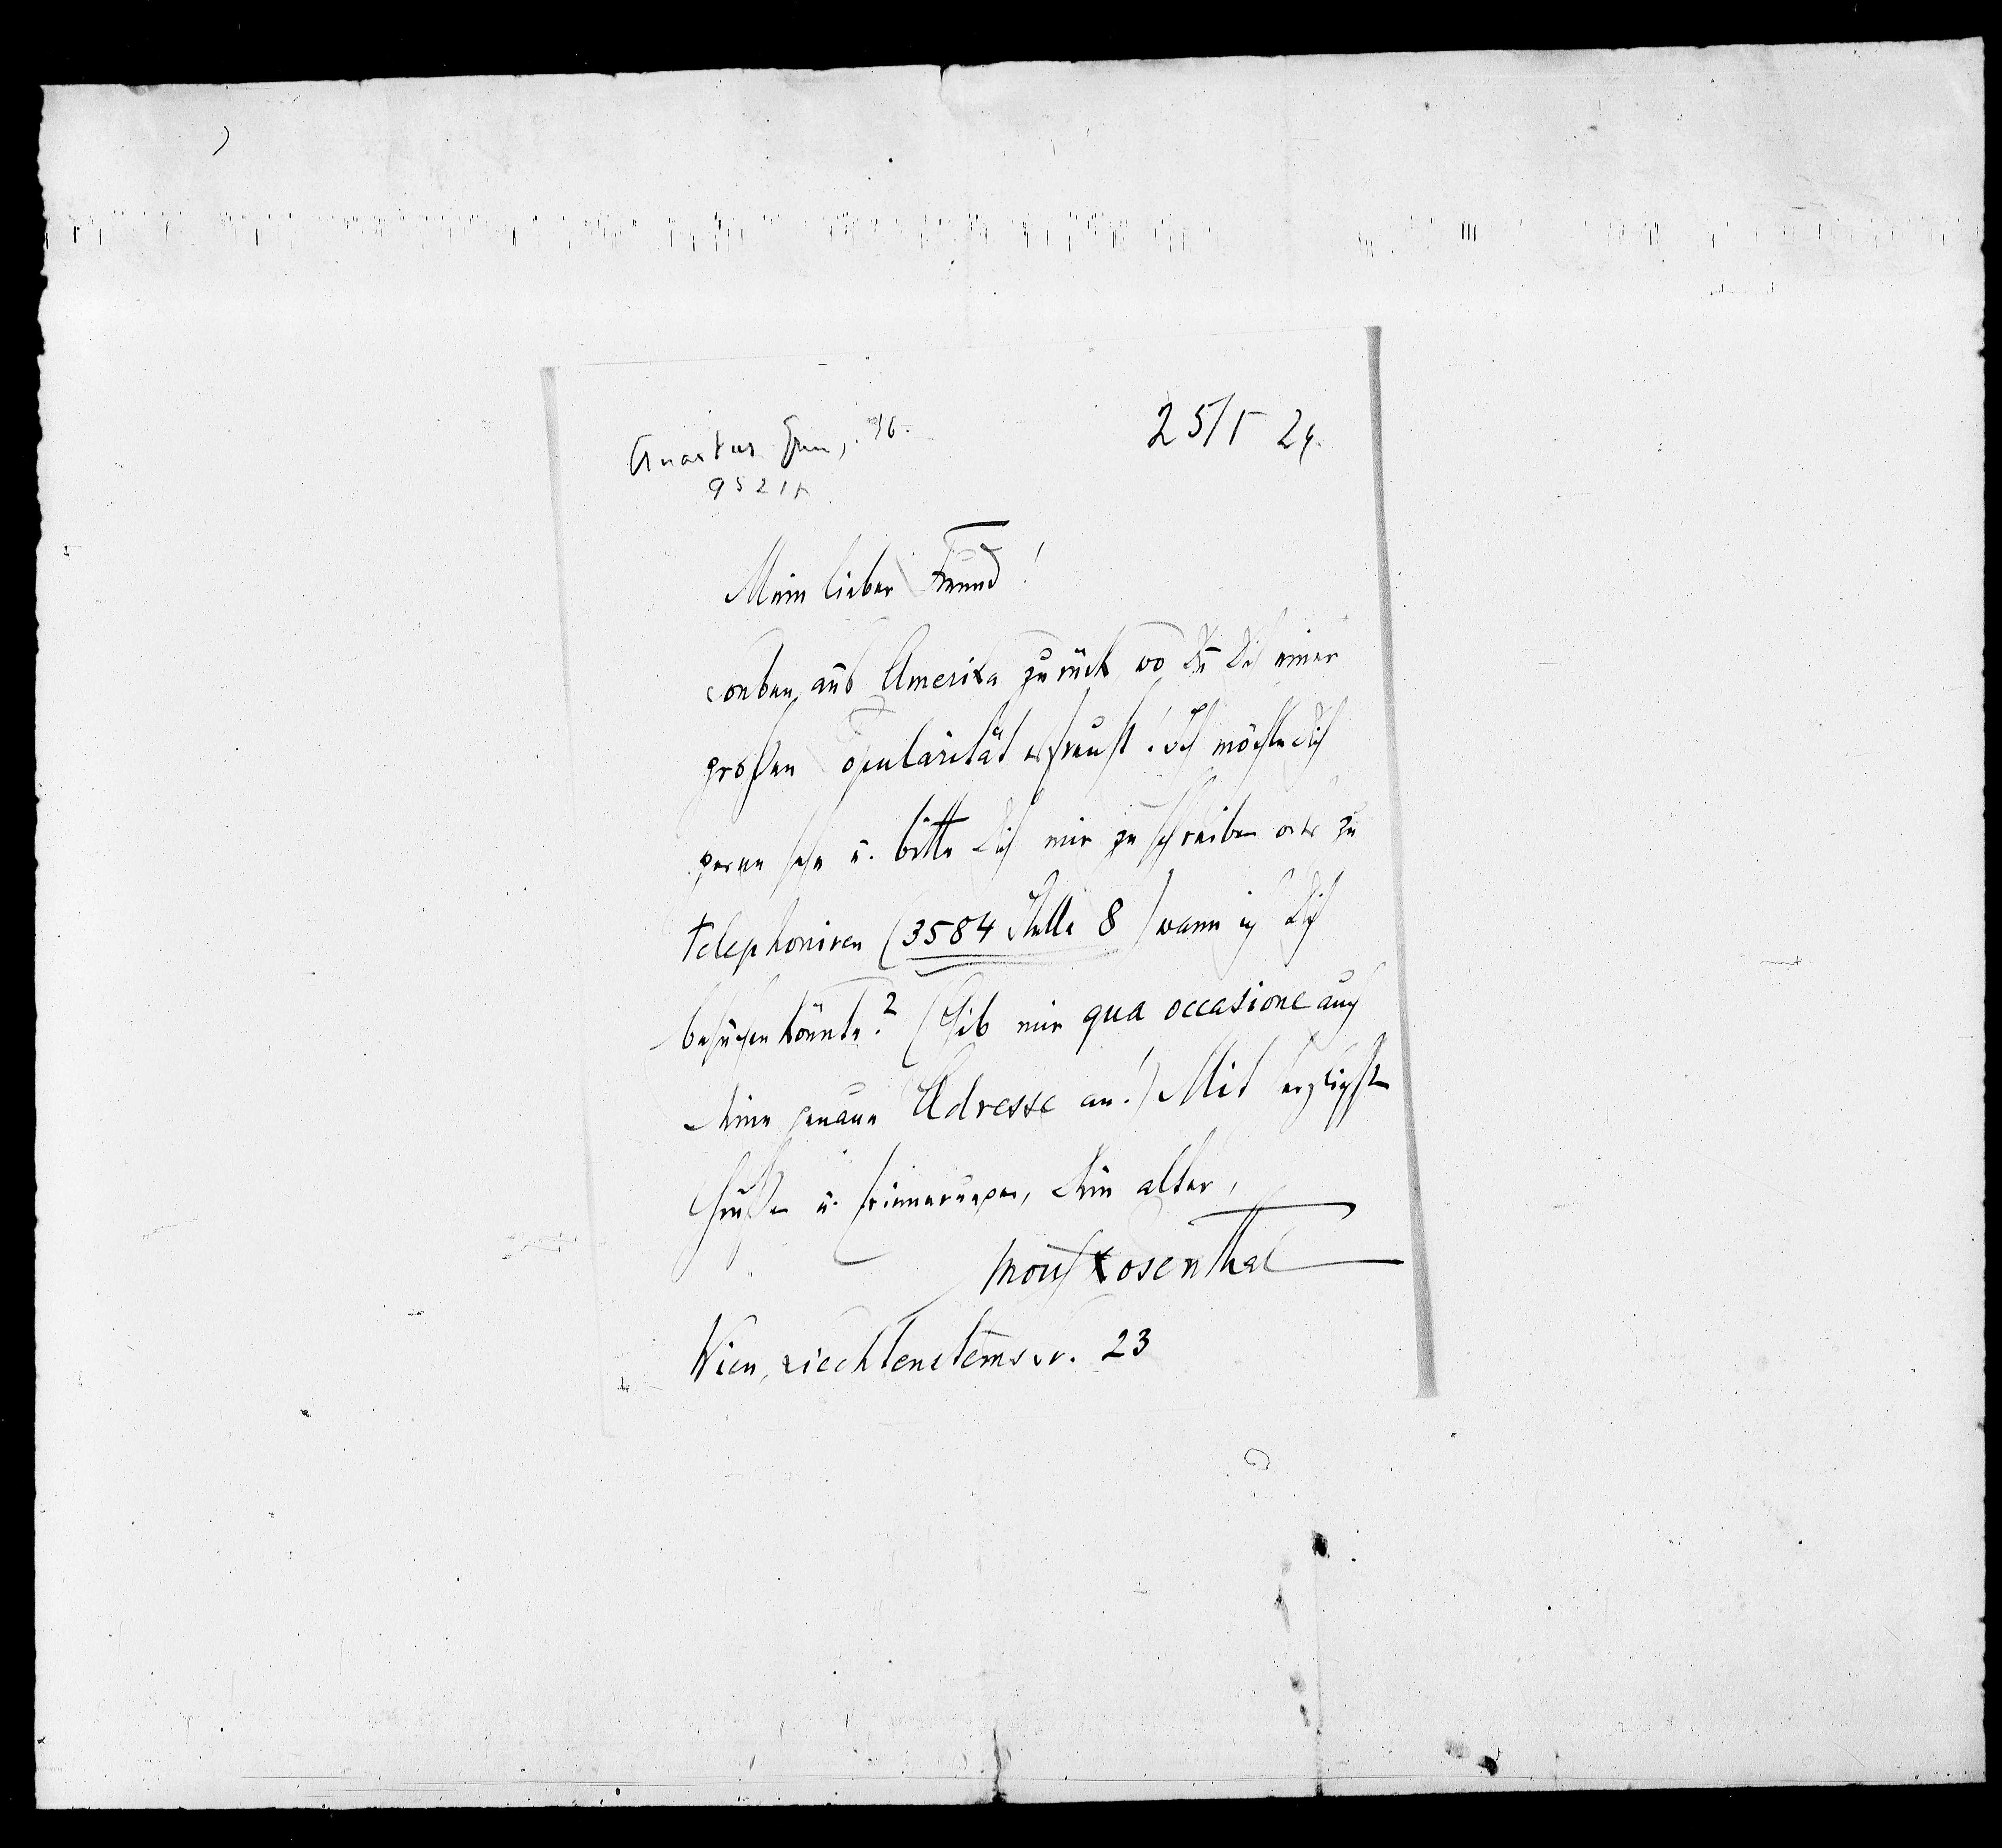 25/5 24.
9521
Mein lieber Freund!
soeben aus Amerika zurück wo Du Dich einer
großen Popularität erfreust! Ich möchte Dich
gerne sehn u. bitte Dich mir zu schreiben oder zu
telephoniren (3584 Stelle 8) wann ich Dich
besuchen könnte? (Gib mir qua occasione auch
Deine genaue Adresse an!) Mit herzlichsten
Grüßen u. Erinnerungen, Dein alter,
Moriz Rosenthal
Wien, Liechtensteinstr. 23